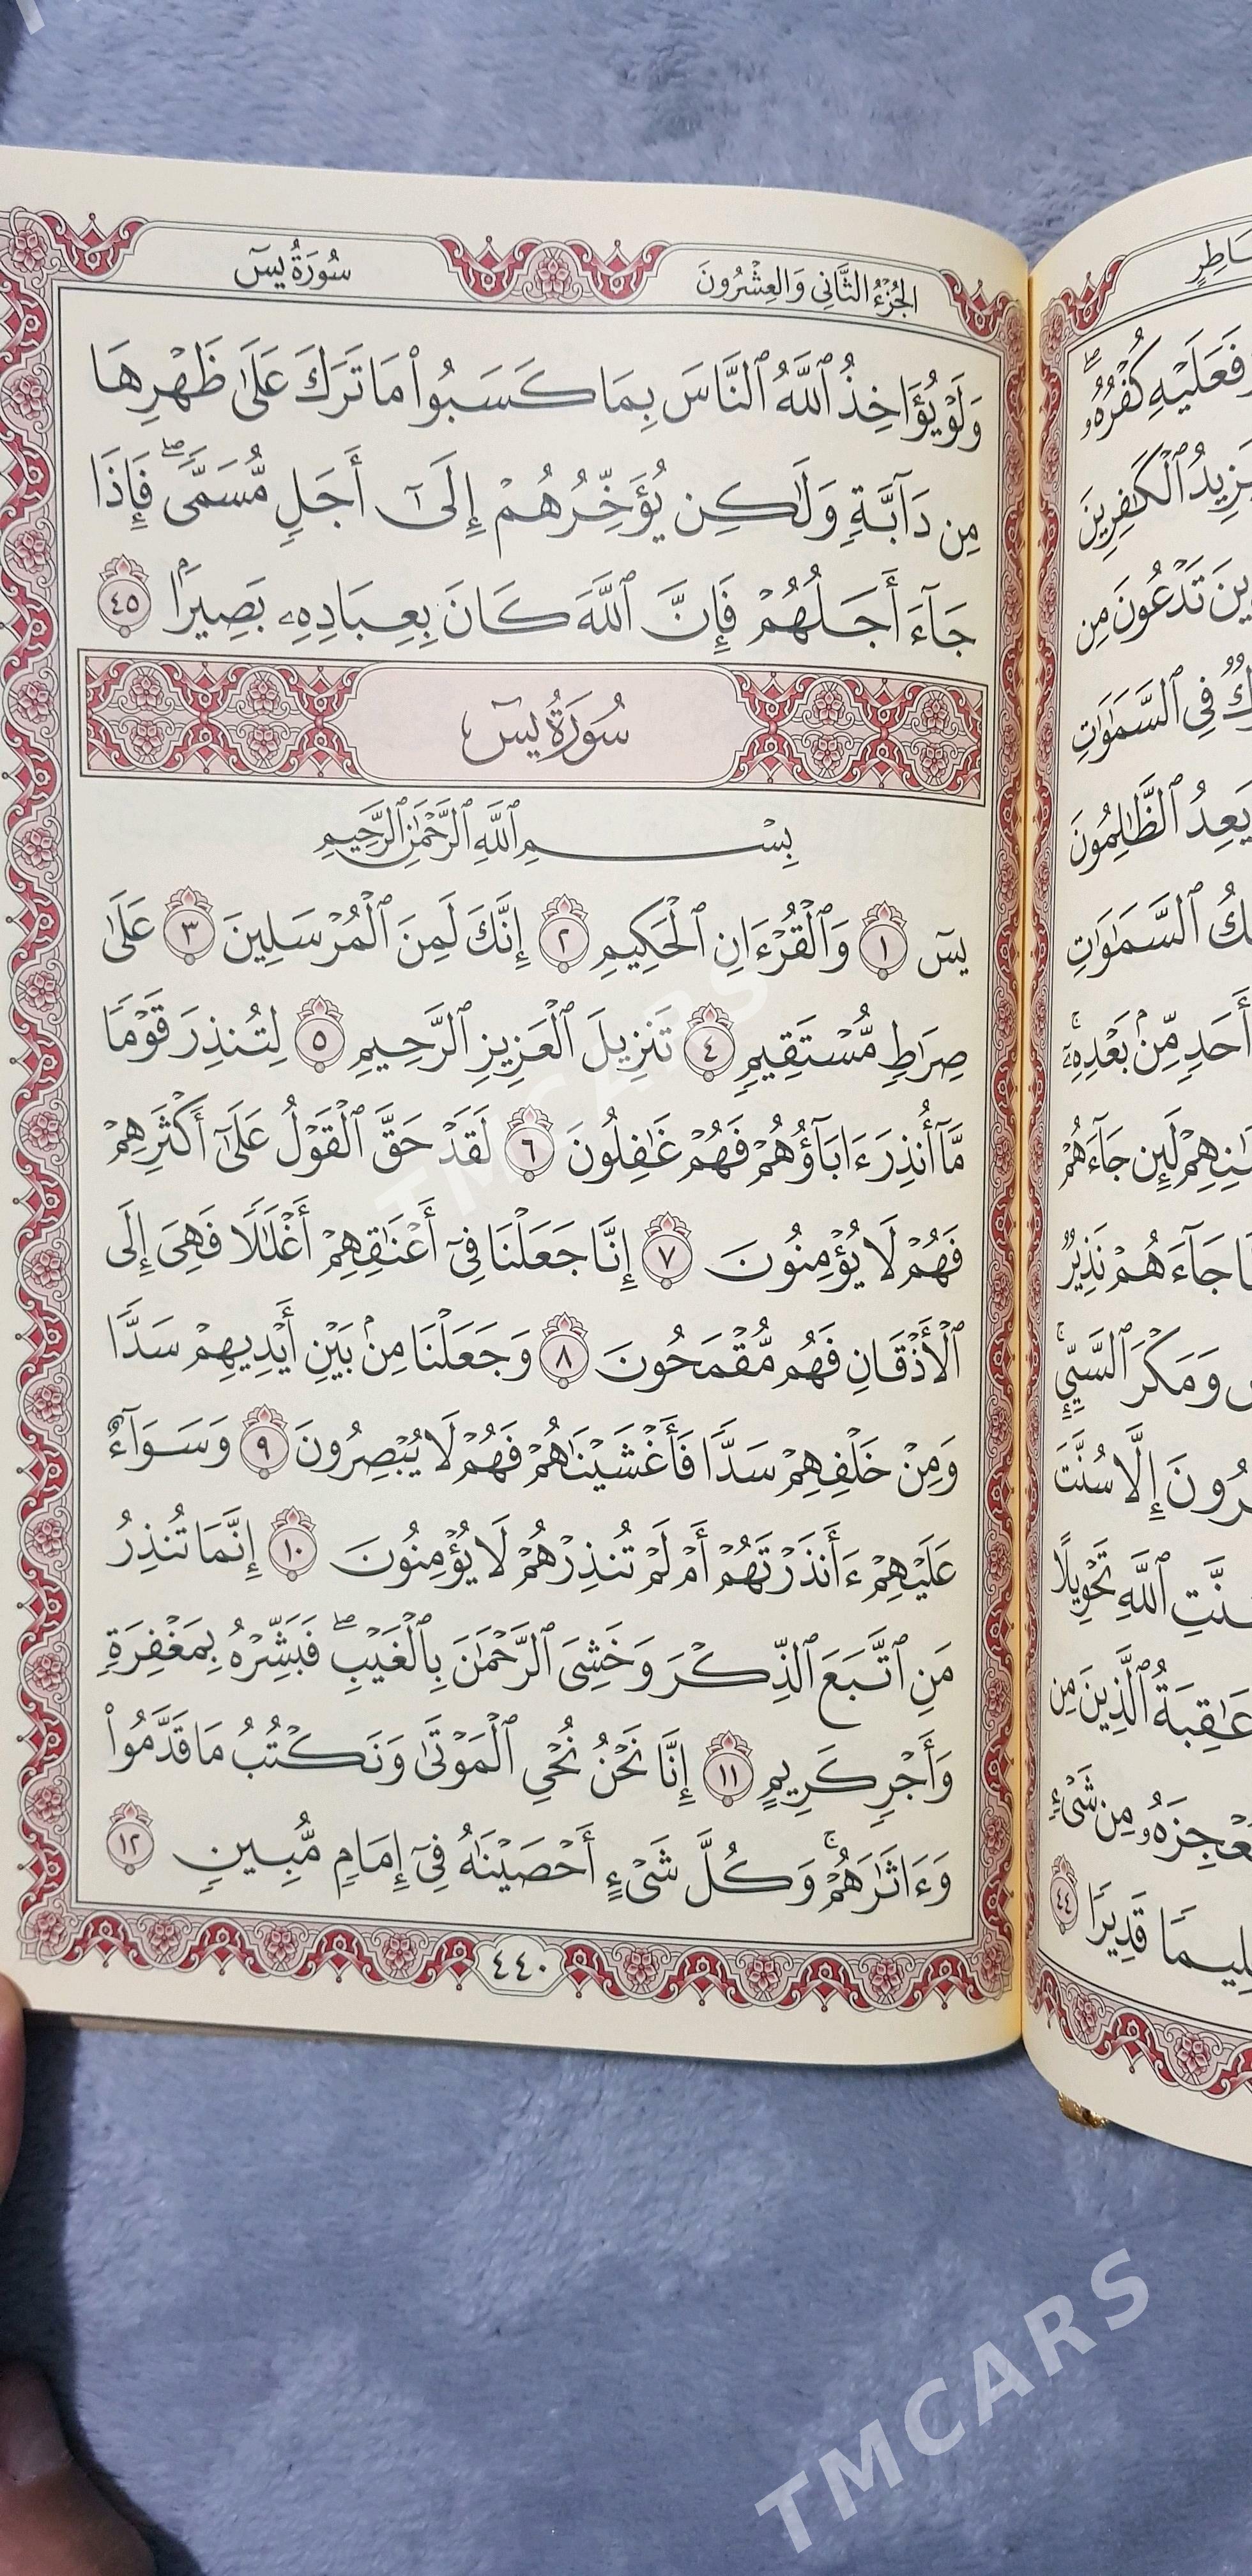 سُورَةُ يسٓ
الجُزْءُ الثَّانِي وَالعِشْرُونَ
وَلَوْ يُؤَاخِذُ ٱللَّهُ ٱلنَّاسَ بِمَا كَسَبُوا۟ مَا تَرَكَ عَلَىٰ ظَهْرِهَا
مِن دَآبَّةٍ وَلَٰكِن يُؤَخِّرُهُمْ إِلَىٰٓ أَجَلٍ مُّسَمًّى ۖ فَإِذَا
جَآءَ أَجَلُهُمْ فَإِنَّ ٱللَّهَ كَانَ بِعِبَادِهِۦ بَصِيرًۢا ٤٥
سُورَةُ يسٓ
بِسْمِ ٱللَّهِ ٱلرَّحْمَٰنِ ٱلرَّحِيمِ
يسٓ ١ وَٱلْقُرْءَانِ ٱلْحَكِيمِ ٢ إِنَّكَ لَمِنَ ٱلْمُرْسَلِينَ ٣ عَلَىٰ
صِرَٰطٍ مُّسْتَقِيمٍ ٤ تَنزِيلَ ٱلْعَزِيزِ ٱلرَّحِيمِ ٥ لِتُنذِرَ قَوْمًا
مَّآ أُنذِرَ ءَابَآؤُهُمْ فَهُمْ غَٰفِلُونَ ٦ لَقَدْ حَقَّ ٱلْقَوْلُ عَلَىٰٓ أَكْثَرِهِمْ
فَهُمْ لَا يُؤْمِنُونَ ٧ إِنَّا جَعَلْنَا فِىٓ أَعْنَٰقِهِمْ أَغْلَٰلًا فَهِىَ إِلَى
ٱلْأَذْقَانِ فَهُم مُّقْمَحُونَ ٨ وَجَعَلْنَا مِنۢ بَيْنِ أَيْدِيهِمْ سَدًّا
وَمِنْ خَلْفِهِمْ سَدًّا فَأَغْشَيْنَٰهُمْ فَهُمْ لَا يُبْصِرُونَ ٩ وَسَوَآءٌ
عَلَيْهِمْ ءَأَنذَرْتَهُمْ أَمْ لَمْ تُنذِرْهُمْ لَا يُؤْمِنُونَ ١٠ إِنَّمَا تُنذِرُ
مَنِ ٱتَّبَعَ ٱلذِّكْرَ وَخَشِىَ ٱلرَّحْمَٰنَ بِٱلْغَيْبِ ۖ فَبَشِّرْهُ بِمَغْفِرَةٍ
وَأَجْرٍ كَرِيمٍ ١١ إِنَّا نَحْنُ نُحْىِ ٱلْمَوْتَىٰ وَنَكْتُبُ مَا قَدَّمُوا۟
وَءَاثَٰرَهُمْ ۚ وَكُلَّ شَىْءٍ أَحْصَيْنَٰهُ فِىٓ إِمَامٍ مُّبِينٍ ١٢
٤٤٠
فَعَلَيْهِ كُفْرُهُۥ ۖ
يَزِيدُ ٱلْكَٰفِرِينَ
تَدْعُونَ مِن
فِى ٱلسَّمَٰوَٰتِ
يَعِدُ ٱلظَّٰلِمُونَ
ٱلسَّمَٰوَٰتِ
أَحَدٍ مِّنۢ بَعْدِهِۦٓ ۚ
لَئِن جَآءَهُمْ
جَآءَهُمْ نَذِيرٌ
وَمَكْرَ ٱلسَّيِّئِ ۚ
إِلَّا سُنَّتَ
ٱللَّهِ تَحْوِيلًا
عَٰقِبَةُ ٱلَّذِينَ مِن
مِن شَىْءٍ
قَدِيرًا ٤٤
TMCARS
TMCARS